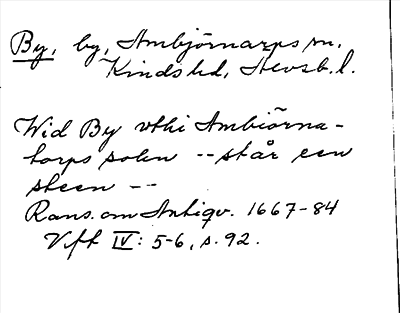 By, by, Ambjörnarps sn.
Kinds hd, Älvsb. l.
Wid By vthi Ambiörna-
torps solen -- står een
steen --
Rans. om Antiqv. 1667-84
Vft IV: 5-6, s. 92.